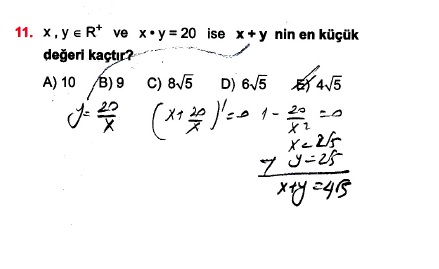 11. x , y ∈ R⁺ ve x • y = 20 ise x + y nin en küçük
değeri kaçtır?
A) 10 B) 9 C) 8√5 D) 6√5 E) 4√5
y = 20/x (x + 20/x)' = 0 1 - 20/x² = 0
x = 2√5
y = 2√5
x+y = 4√5